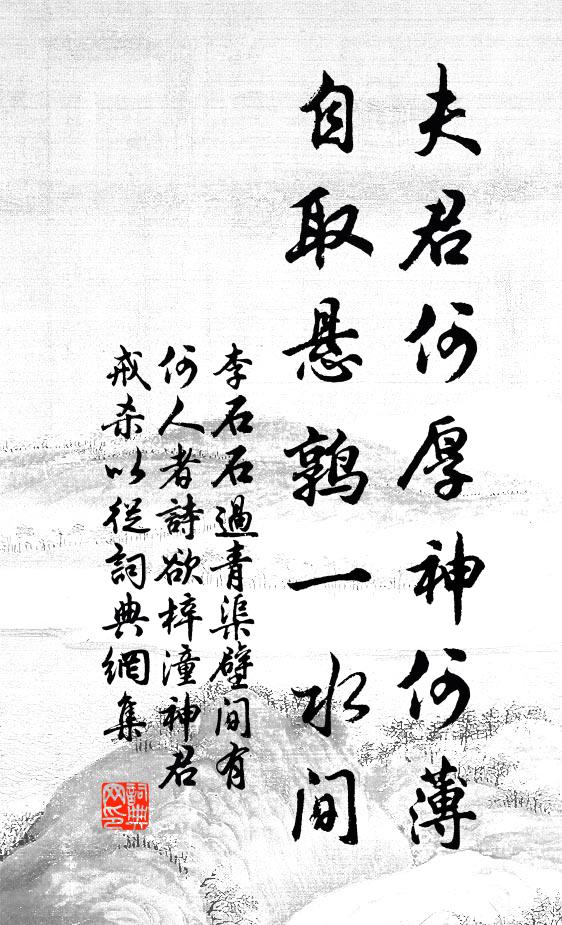 夫君何厚神何薄
自取悬鹑一水间
李石石過青渠壁间有
何人者詩欲梓潼神君
戒杀以從詞典網集
詞典
网印